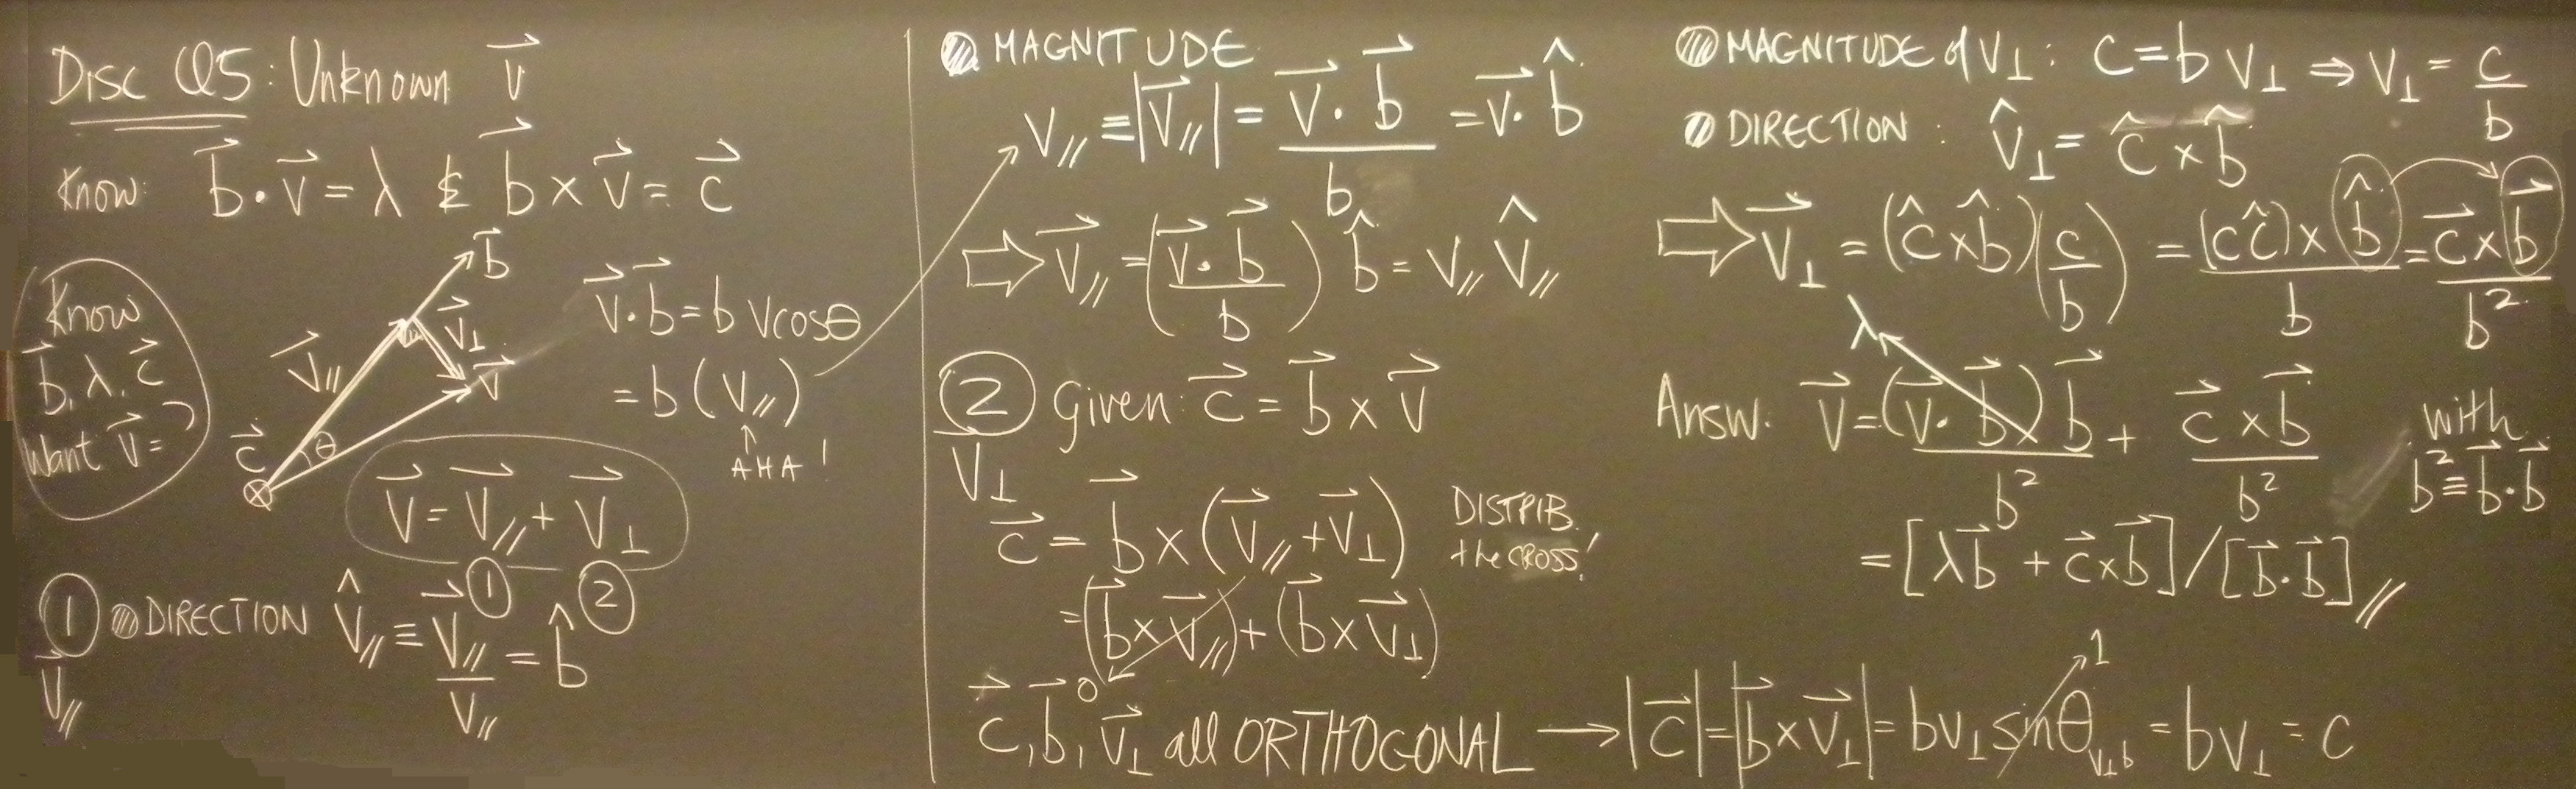 Disc Q5: Unknown v⃗
Know: b⃗ · v⃗ = λ & b⃗ × v⃗ = c⃗
Know
b⃗, λ, c⃗
Want v⃗ = ?
b⃗
v⃗∥
v⃗⊥
v⃗
θ
c⃗
⊗
v⃗·b⃗ = b v cosθ
= b (v∥)
↑
AHA!
v⃗ = v⃗∥ + v⃗⊥
① ②
① DIRECTION v̂∥ ≡ v⃗∥ / v∥ = b̂
v⃗∥
MAGNITUDE
v∥ ≡ |v⃗∥| = v⃗ · b⃗ / b = v⃗ · b̂
⇒ v⃗∥ = (v⃗ · b⃗ / b) b̂ = v∥ v̂∥
② Given: c⃗ = b⃗ × v⃗
v⃗⊥
c⃗ = b⃗ × (v⃗∥ + v⃗⊥) DISTRIB.
the CROSS!
= (b⃗ × v⃗∥) + (b⃗ × v⃗⊥)
0
c⃗, b⃗, v⃗⊥ all ORTHOGONAL → |c⃗| = |b⃗ × v⃗⊥| = b v⊥ sinθ_v⊥b = b v⊥ = c
1
MAGNITUDE of v⊥: c = b v⊥ ⇒ v⊥ = c / b
DIRECTION: v̂⊥ = ĉ × b̂
⇒ v⃗⊥ = (ĉ × b̂)(c / b) = (c ĉ) × b̂ / b = c⃗ × b⃗ / b²
λ
Answ: v⃗ = (v⃗ · b⃗) b⃗ / b² + c⃗ × b⃗ / b² with
b² ≡ b⃗ · b⃗
= [λb⃗ + c⃗ × b⃗] / [b⃗ · b⃗] //